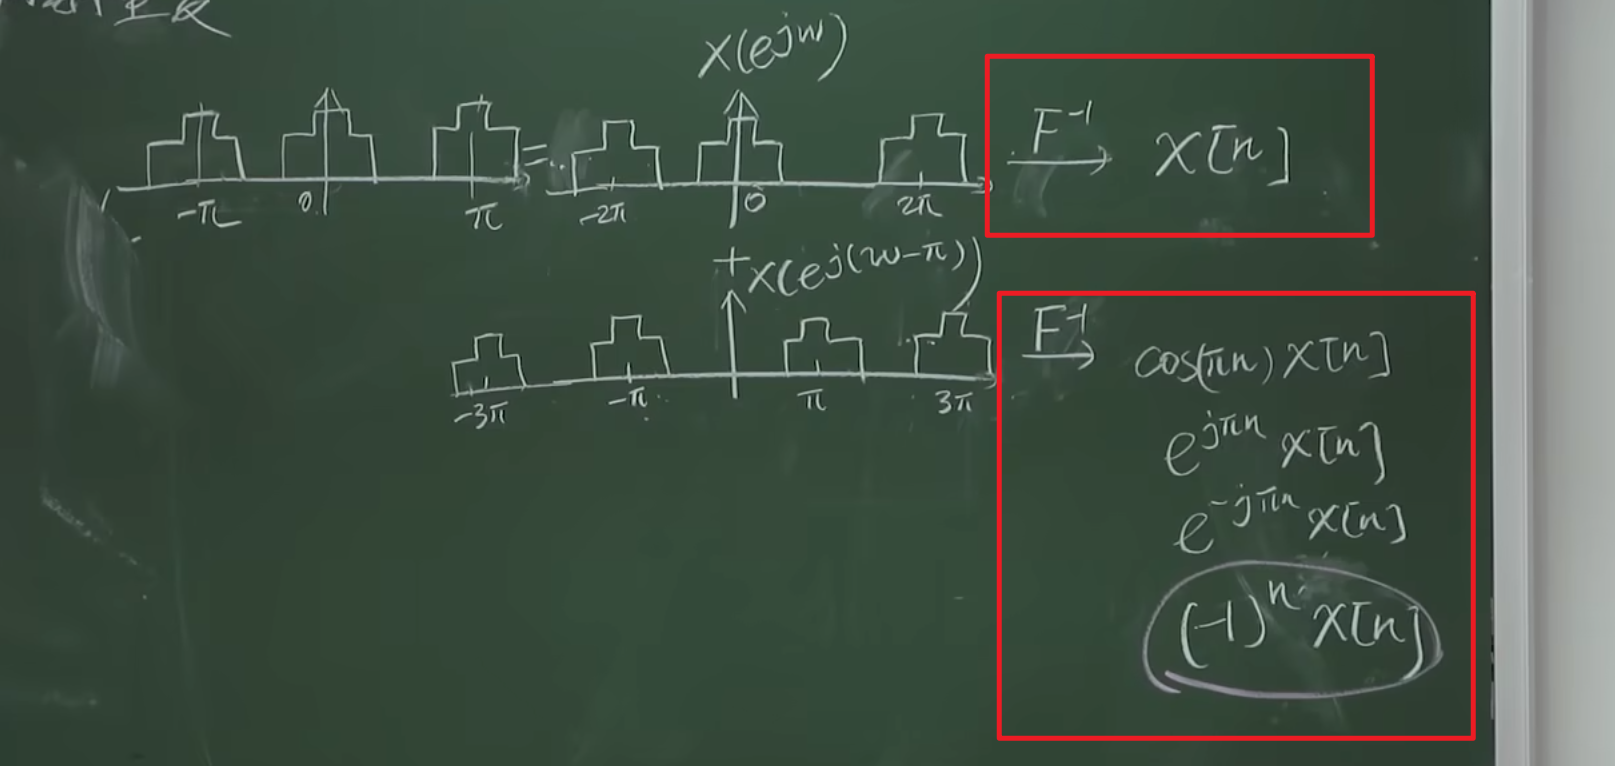 X(e^{jw})
-π 0 π = ... -2π 0 2π F^{-1} → X[n]
+ X(e^{j(w-π)})
-3π -π π 3π F^{-1} → cos(πn) X[n]
e^{jπn} X[n]
e^{-jπn} X[n]
(-1)^n X[n]